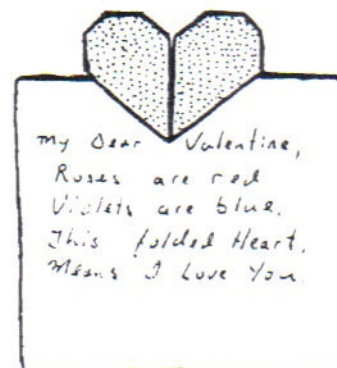 My Dear Valentine,
Roses are red
Violets are blue.
This folded Heart,
Means I Love You.